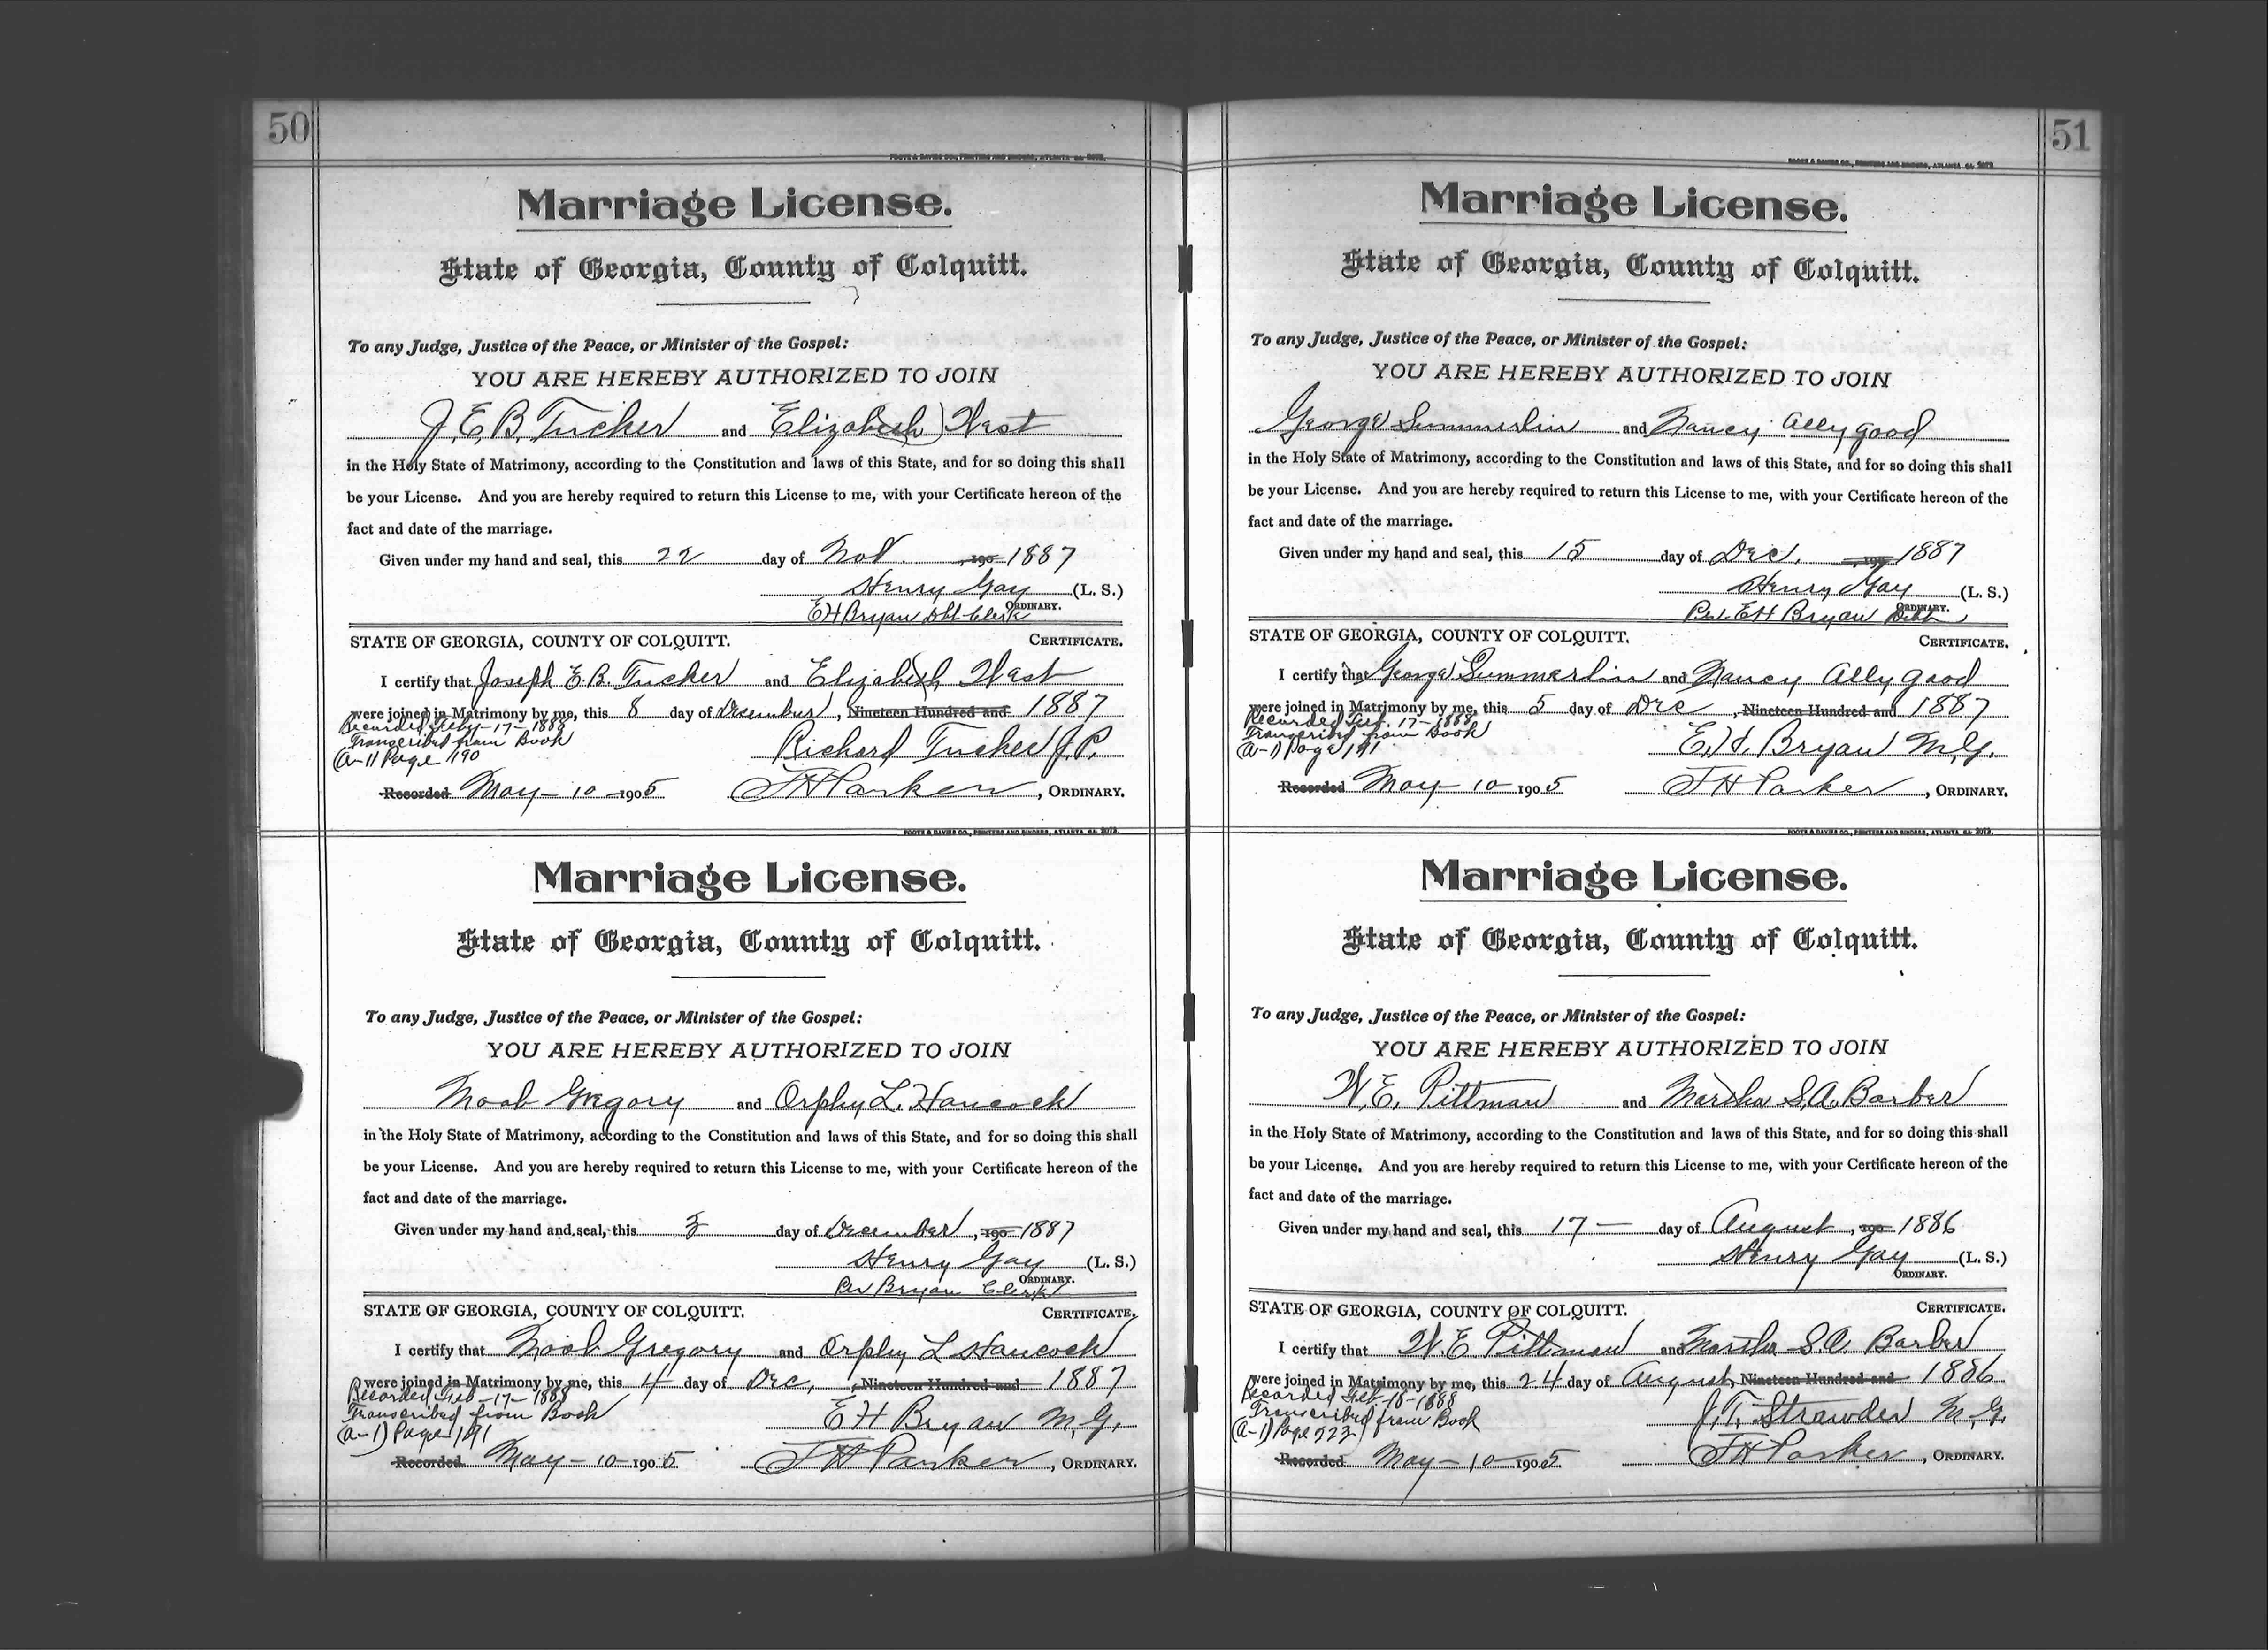 50
FOOTE & DAVIES CO., PRINTERS AND BINDERS, ATLANTA, GA. 2072.
Marriage License.
State of Georgia, County of Colquitt.
To any Judge, Justice of the Peace, or Minister of the Gospel:
YOU ARE HEREBY AUTHORIZED TO JOIN
J. E. B. Tucker and Elizabeth West
in the Holy State of Matrimony, according to the Constitution and laws of this State, and for so doing this shall
be your License. And you are hereby required to return this License to me, with your Certificate hereon of the
fact and date of the marriage.
Given under my hand and seal, this 22 day of Nov. , 190 1887
Henry Gay (L. S.)
ORDINARY.
E H Bryan Clerk
STATE OF GEORGIA, COUNTY OF COLQUITT. CERTIFICATE.
I certify that Joseph E. B. Tucker and Elizabeth West
were joined in Matrimony by me, this 8 day of December , Nineteen Hundred and 1887
Recorded Feby - 17 - 1888
Transcribed from Book
(A-1) Page 190
Richard Tucker J. P.
Recorded May - 10 - 1905 J H Parker , ORDINARY.
FOOTE & DAVIES CO., PRINTERS AND BINDERS, ATLANTA, GA. 2072.
Marriage License.
State of Georgia, County of Colquitt.
To any Judge, Justice of the Peace, or Minister of the Gospel:
YOU ARE HEREBY AUTHORIZED TO JOIN
Noah Gregory and Orphy L. Hancock
in the Holy State of Matrimony, according to the Constitution and laws of this State, and for so doing this shall
be your License. And you are hereby required to return this License to me, with your Certificate hereon of the
fact and date of the marriage.
Given under my hand and seal, this 3 day of December , 190 1887
Henry Gay (L. S.)
ORDINARY.
Per Bryan Clerk
STATE OF GEORGIA, COUNTY OF COLQUITT. CERTIFICATE.
I certify that Noah Gregory and Orphy L Hancock
were joined in Matrimony by me, this 4 day of Dec, , Nineteen Hundred and 1887
Recorded Feb - 17 - 1888
Transcribed from Book
(A-1) Page 191
E H Bryan M. G.
Recorded May - 10 - 1905 J H Parker , ORDINARY.
51
FOOTE & DAVIES CO., PRINTERS AND BINDERS, ATLANTA, GA. 2072.
Marriage License.
State of Georgia, County of Colquitt.
To any Judge, Justice of the Peace, or Minister of the Gospel:
YOU ARE HEREBY AUTHORIZED TO JOIN
George Summerlin and Nancy Ally good
in the Holy State of Matrimony, according to the Constitution and laws of this State, and for so doing this shall
be your License. And you are hereby required to return this License to me, with your Certificate hereon of the
fact and date of the marriage.
Given under my hand and seal, this 15 day of Dec. , 190 1887
Henry Gay (L. S.)
ORDINARY.
Per. E H Bryan
STATE OF GEORGIA, COUNTY OF COLQUITT. CERTIFICATE.
I certify that George Summerlin and Nancy Ally good
were joined in Matrimony by me, this 5 day of Dec , Nineteen Hundred and 1887
Recorded Feb. 17 - 1888
Transcribed from Book
(A-1) Page 191
E. H. Bryan M. G.
Recorded May - 10 - 1905 J H Parker , ORDINARY.
FOOTE & DAVIES CO., PRINTERS AND BINDERS, ATLANTA, GA. 2072.
Marriage License.
State of Georgia, County of Colquitt.
To any Judge, Justice of the Peace, or Minister of the Gospel:
YOU ARE HEREBY AUTHORIZED TO JOIN
W. E. Pittman and Martha S. A. Barber
in the Holy State of Matrimony, according to the Constitution and laws of this State, and for so doing this shall
be your License. And you are hereby required to return this License to me, with your Certificate hereon of the
fact and date of the marriage.
Given under my hand and seal, this 17 — day of August , 190 1886
Henry Gay (L. S.)
ORDINARY.
STATE OF GEORGIA, COUNTY OF COLQUITT. CERTIFICATE.
I certify that W. E Pittman and Martha S. A. Barber
were joined in Matrimony by me, this 24 day of August , Nineteen Hundred and 1886
Recorded Feb. 18 - 1888
Transcribed from Book
(A-1) Page 223
J. T. Strawder M. G.
Recorded May - 10 - 1905 J H Parker , ORDINARY.